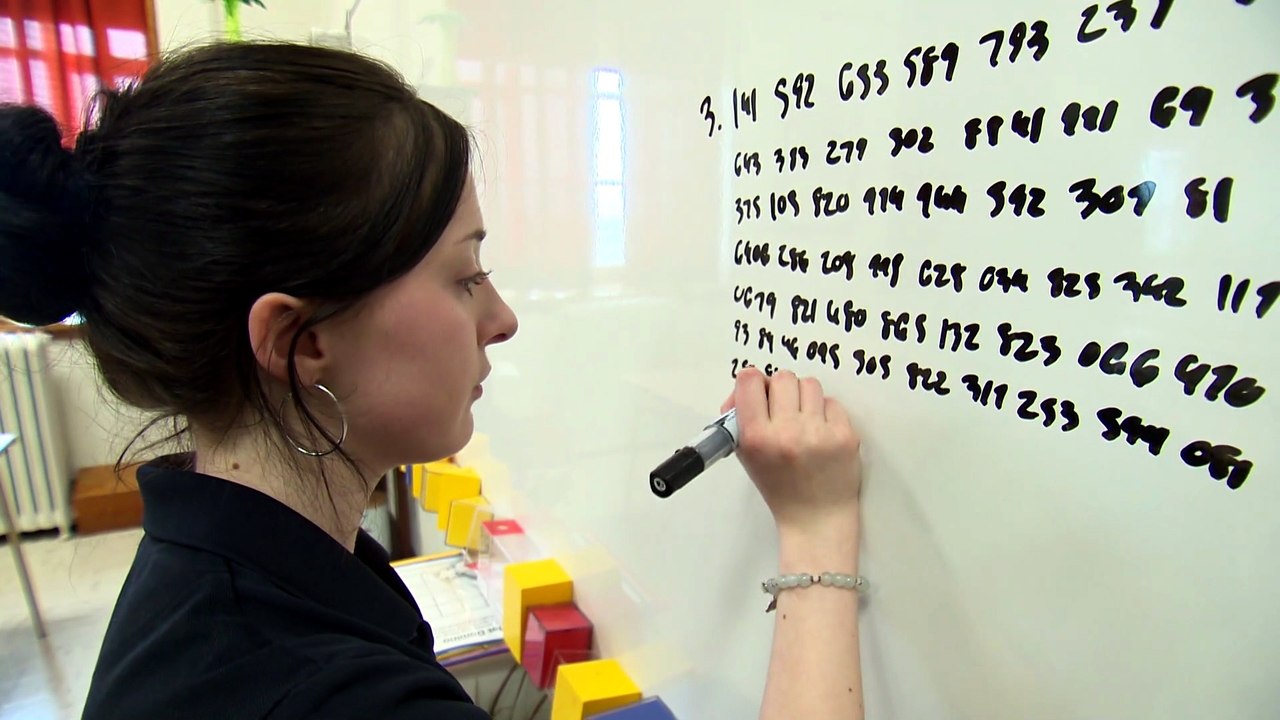 3. 141 592 653 589 793 237
643 383 279 502 88 41 971 69 3
375 105 820 974 944 592 307 81
6406 286 208 998 628 034 825 342 117
0679 821 480 865 132 823 066 470
93 84 46 095 505 822 317 253 594 081